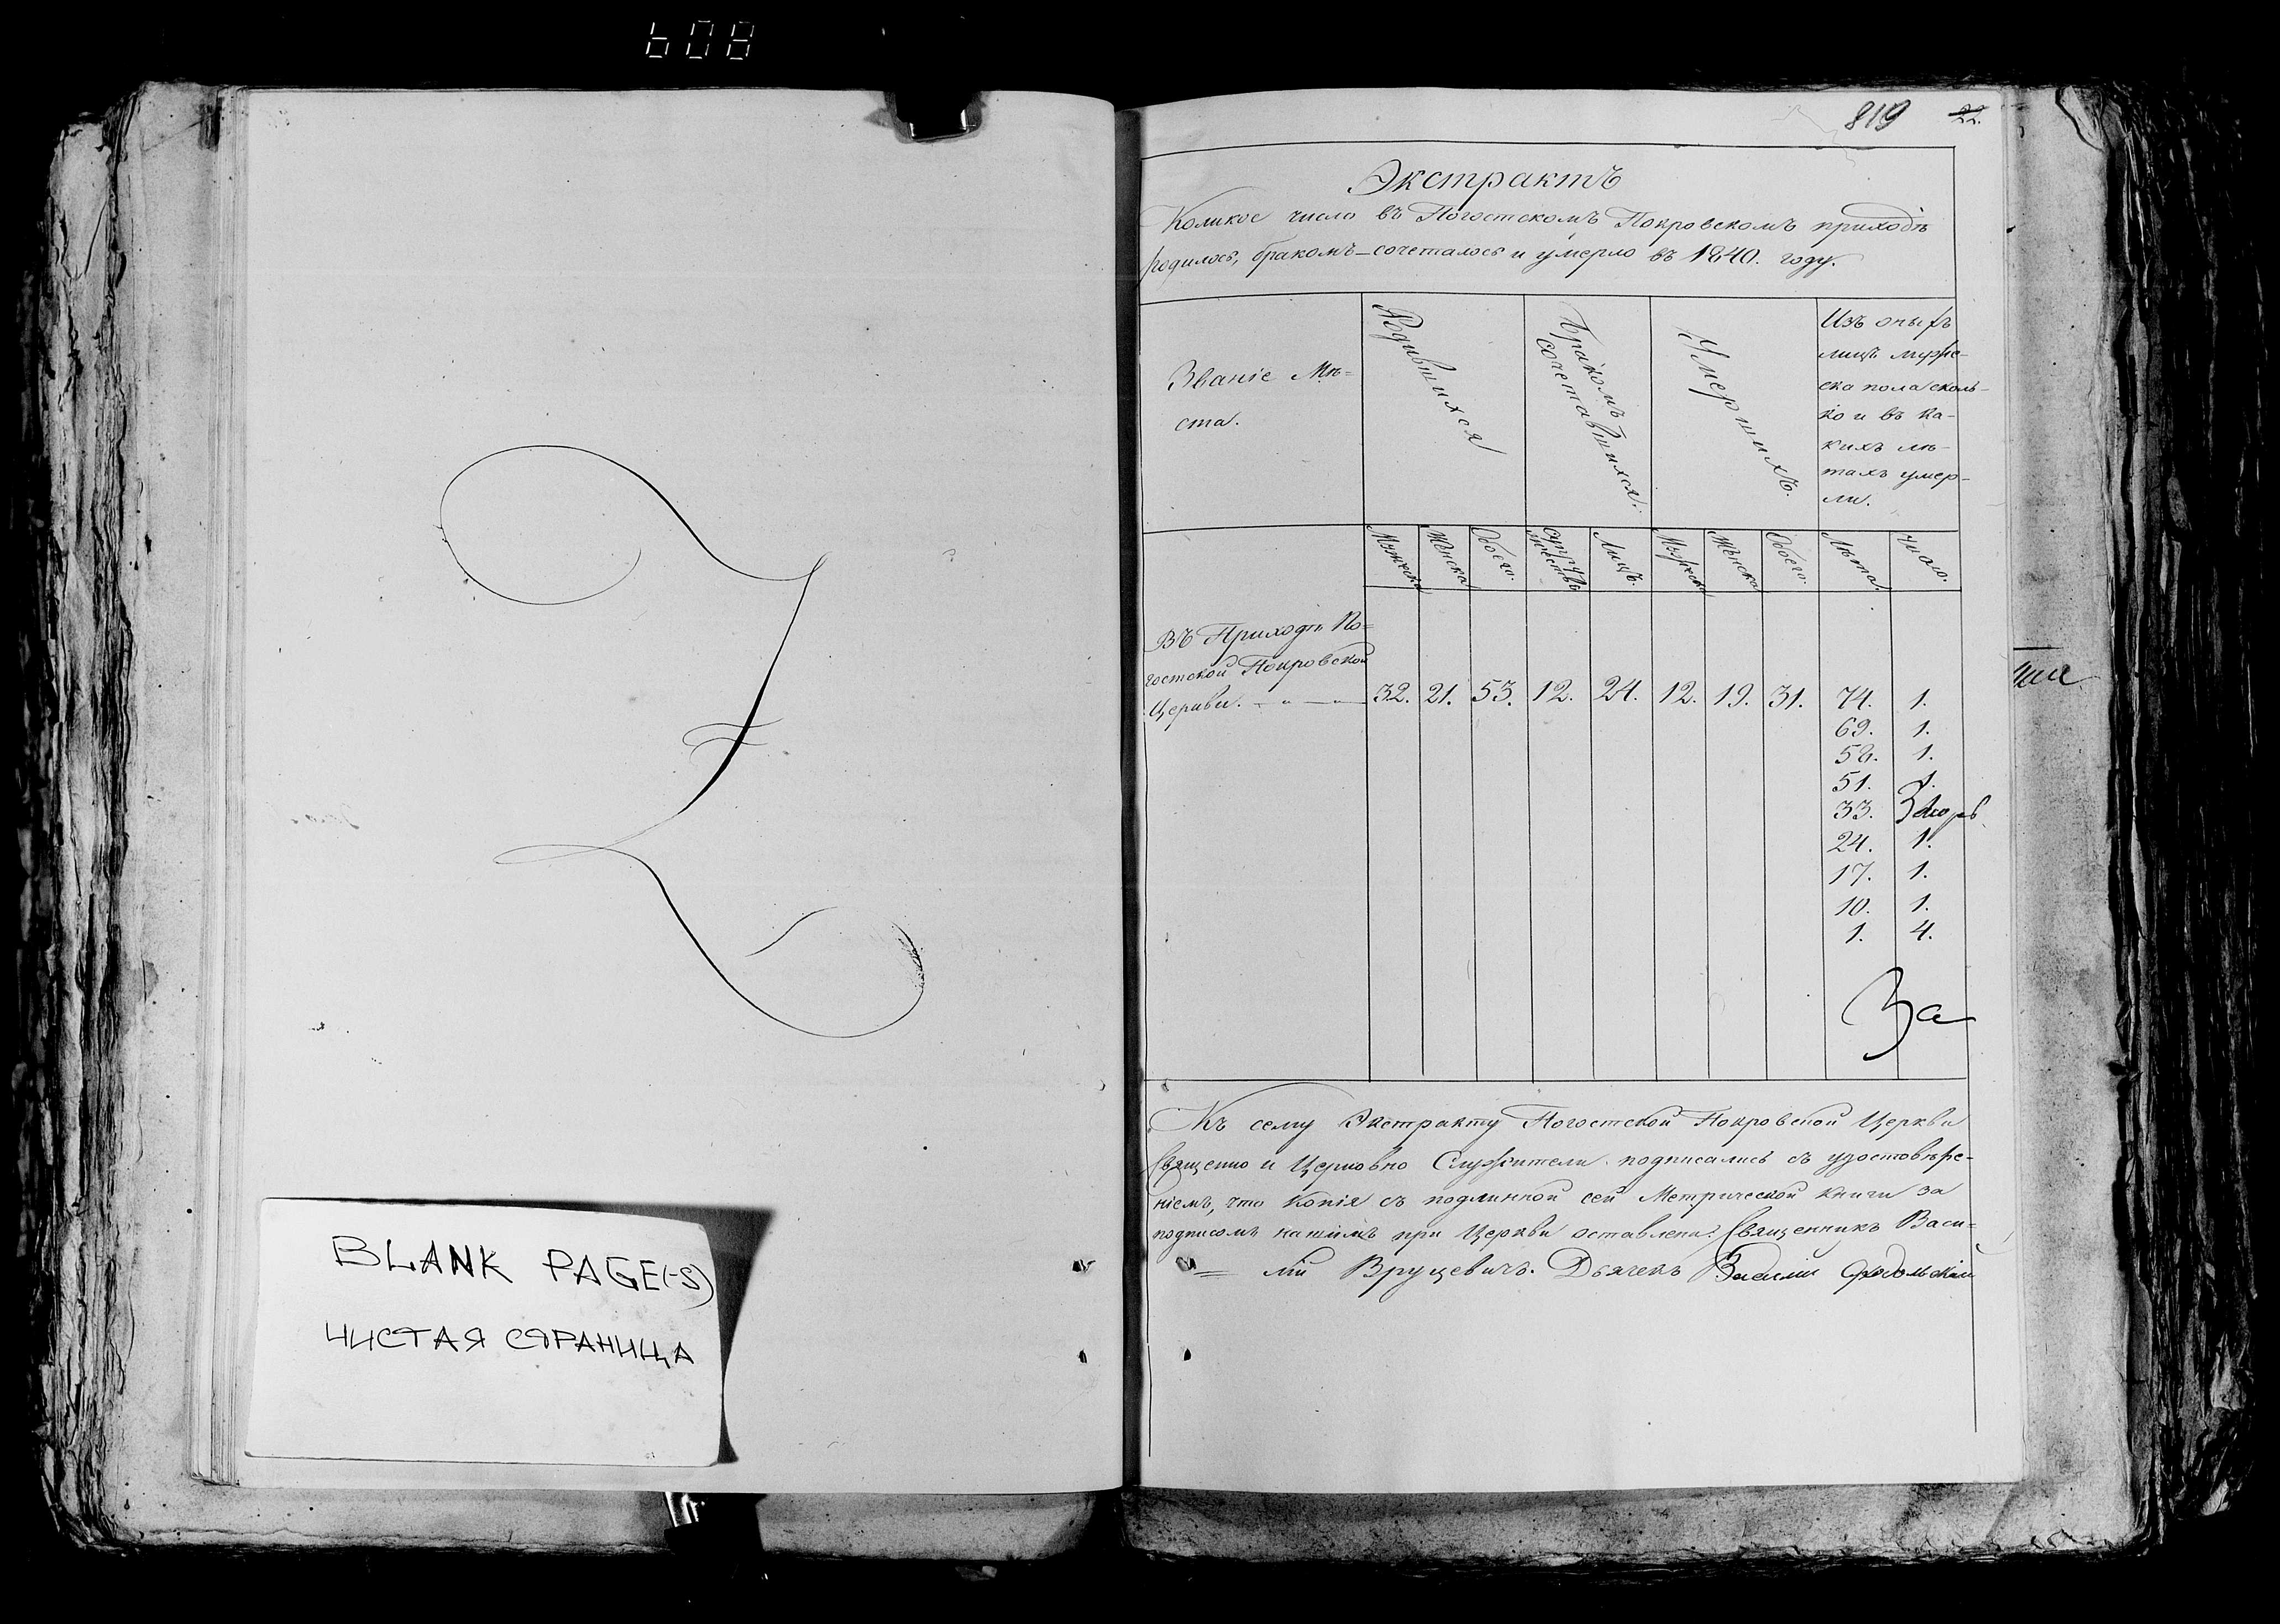 608
BLANK PAGE(-S)
ЧИСТАЯ СТРАНИЦА
819 22.
Экстрактъ
Коликое число въ Погостскомъ Покровскомъ приходѣ
родилось, бракомъ-сочеталось и умерло въ 1840. году.
Званіе Мѣ=
ста.
Родившихся
Бракомъ
сочетавшихся.
Умершихъ.
Изъ оныхъ
лицъ муже-
ска пола сколь-
ко и въ ка-
кихъ лѣ-
тахъ умер-
ли.
Мужеска Женска Обоего. Супружествъ Лицъ. Мужеска Женска Обоего. Лѣта. Число.
Въ Приходѣ По=
гостской Покровской
Церкви. 32. 21. 53. 12. 24. 12. 19. 31. 74. 1.
69. 1.
58. 1.
51. 1.
33.
24. 1.
17. 1.
10. 1.
1. 4.
За
Къ сему Экстракту Погостской Покровской Церкви
Священно и Церковно Служители подписались съ удостовѣре-
ніемъ, что копія съ подлинной сей Метрической книги за
подписомъ нашимъ при Церкви оставлена. Священникъ Васи=
= лій Вруцевичъ. Дьячекъ